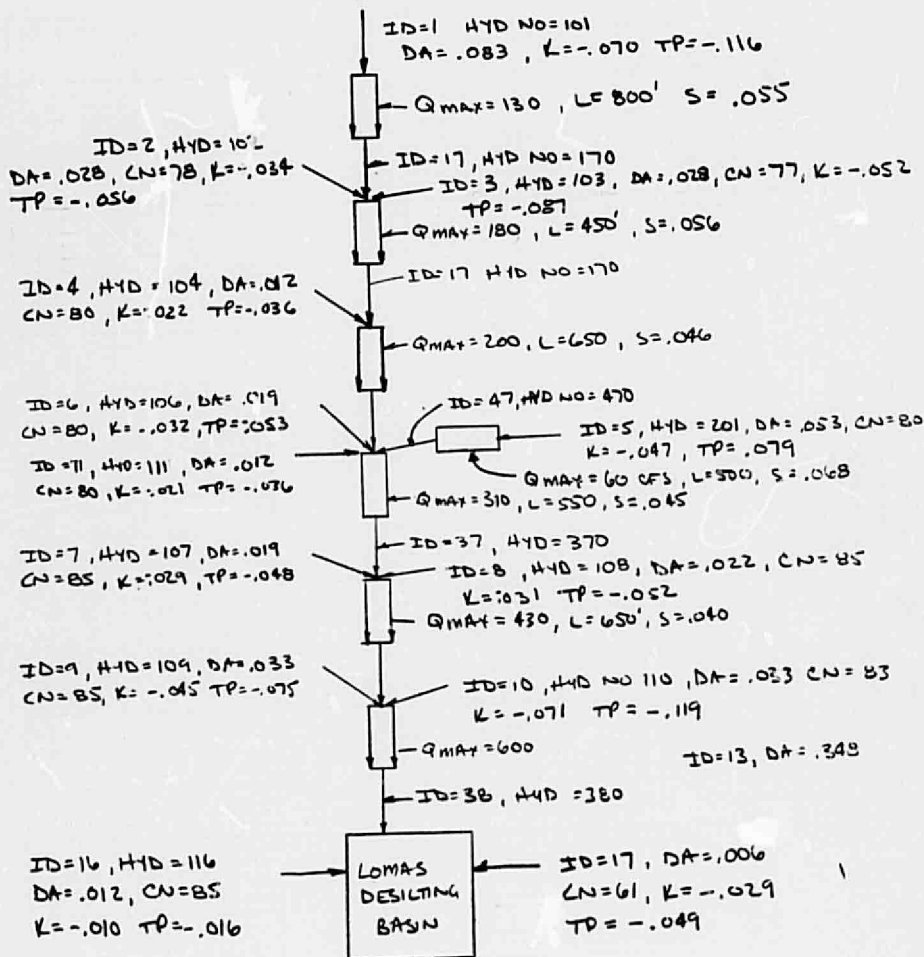 ID=1 HYD NO=101
DA= .083 , K=-.070 TP=-.116
QMAX=130 , L=800' S= .055
ID=2, HYD=102
DA=.028, CN=78, K=-.034
TP=-.056
ID=17, HYD NO=170
ID=3, HYD=103, DA=.028, CN=77, K=-.052
TP=-.087
QMAX=180, L=450', S=.056
ID=17 HYD NO=170
ID=4, HYD=104, DA=.012
CN=80, K=-.022 TP=-.036
QMAX=200, L=650, S=.046
ID=6, HYD=106, DA=.019
CN=80, K=-.032, TP=-.053
ID=47, HYD NO=470
ID=5, HYD=201, DA=.053, CN=80
K=-.047, TP=.079
QMAX=60 CFS, L=500, S=.068
ID=11, HYD=111, DA=.012
CN=80, K=-.021 TP=-.036
QMAX=310, L=550, S=.045
ID=37, HYD=370
ID=7, HYD=107, DA=.019
CN=85, K=-.029, TP=-.048
ID=8, HYD=108, DA=.022, CN=85
K=-.031 TP=-.052
QMAX=430, L=650', S=.040
ID=9, HYD=109, DA=.033
CN=85, K=-.045 TP=-.075
ID=10, HYD NO 110, DA=.033 CN=83
K=-.071 TP=-.119
QMAX=600
ID=13, DA=.348
ID=38, HYD=380
ID=16, HYD=116
DA=.012, CN=85
K=-.010 TP=-.016
LOMAS
DESILTING
BASIN
ID=17, DA=.006
CN=61, K=-.029
TP=-.049